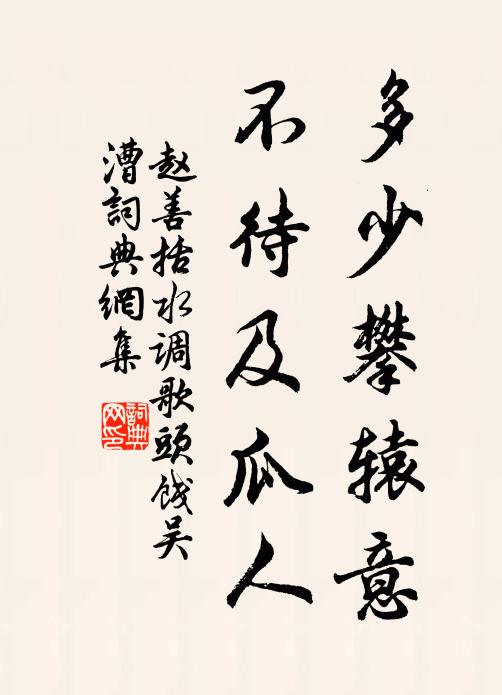 多少攀辕意
不待及瓜人
赵善括水调歌頭饯吴
漕詞典網集
詞典网印